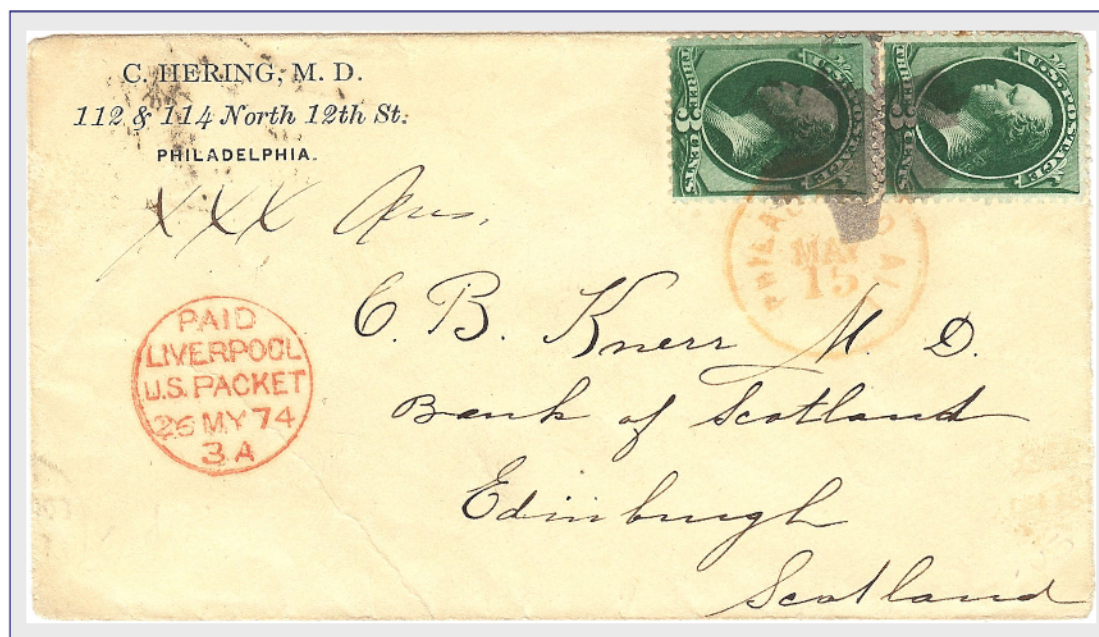 C. HERING, M. D.
112 & 114 North 12th St.
PHILADELPHIA.
U.S. POSTAGE
THREE 3 CENTS
U.S. POSTAGE
THREE 3 CENTS
XXX
MAY
15
PAID
LIVERPOOL
U.S. PACKET
26 MY 74
3 A
C. B. Knerr M. D.
Bank of Scotland
Edinburgh
Scotland